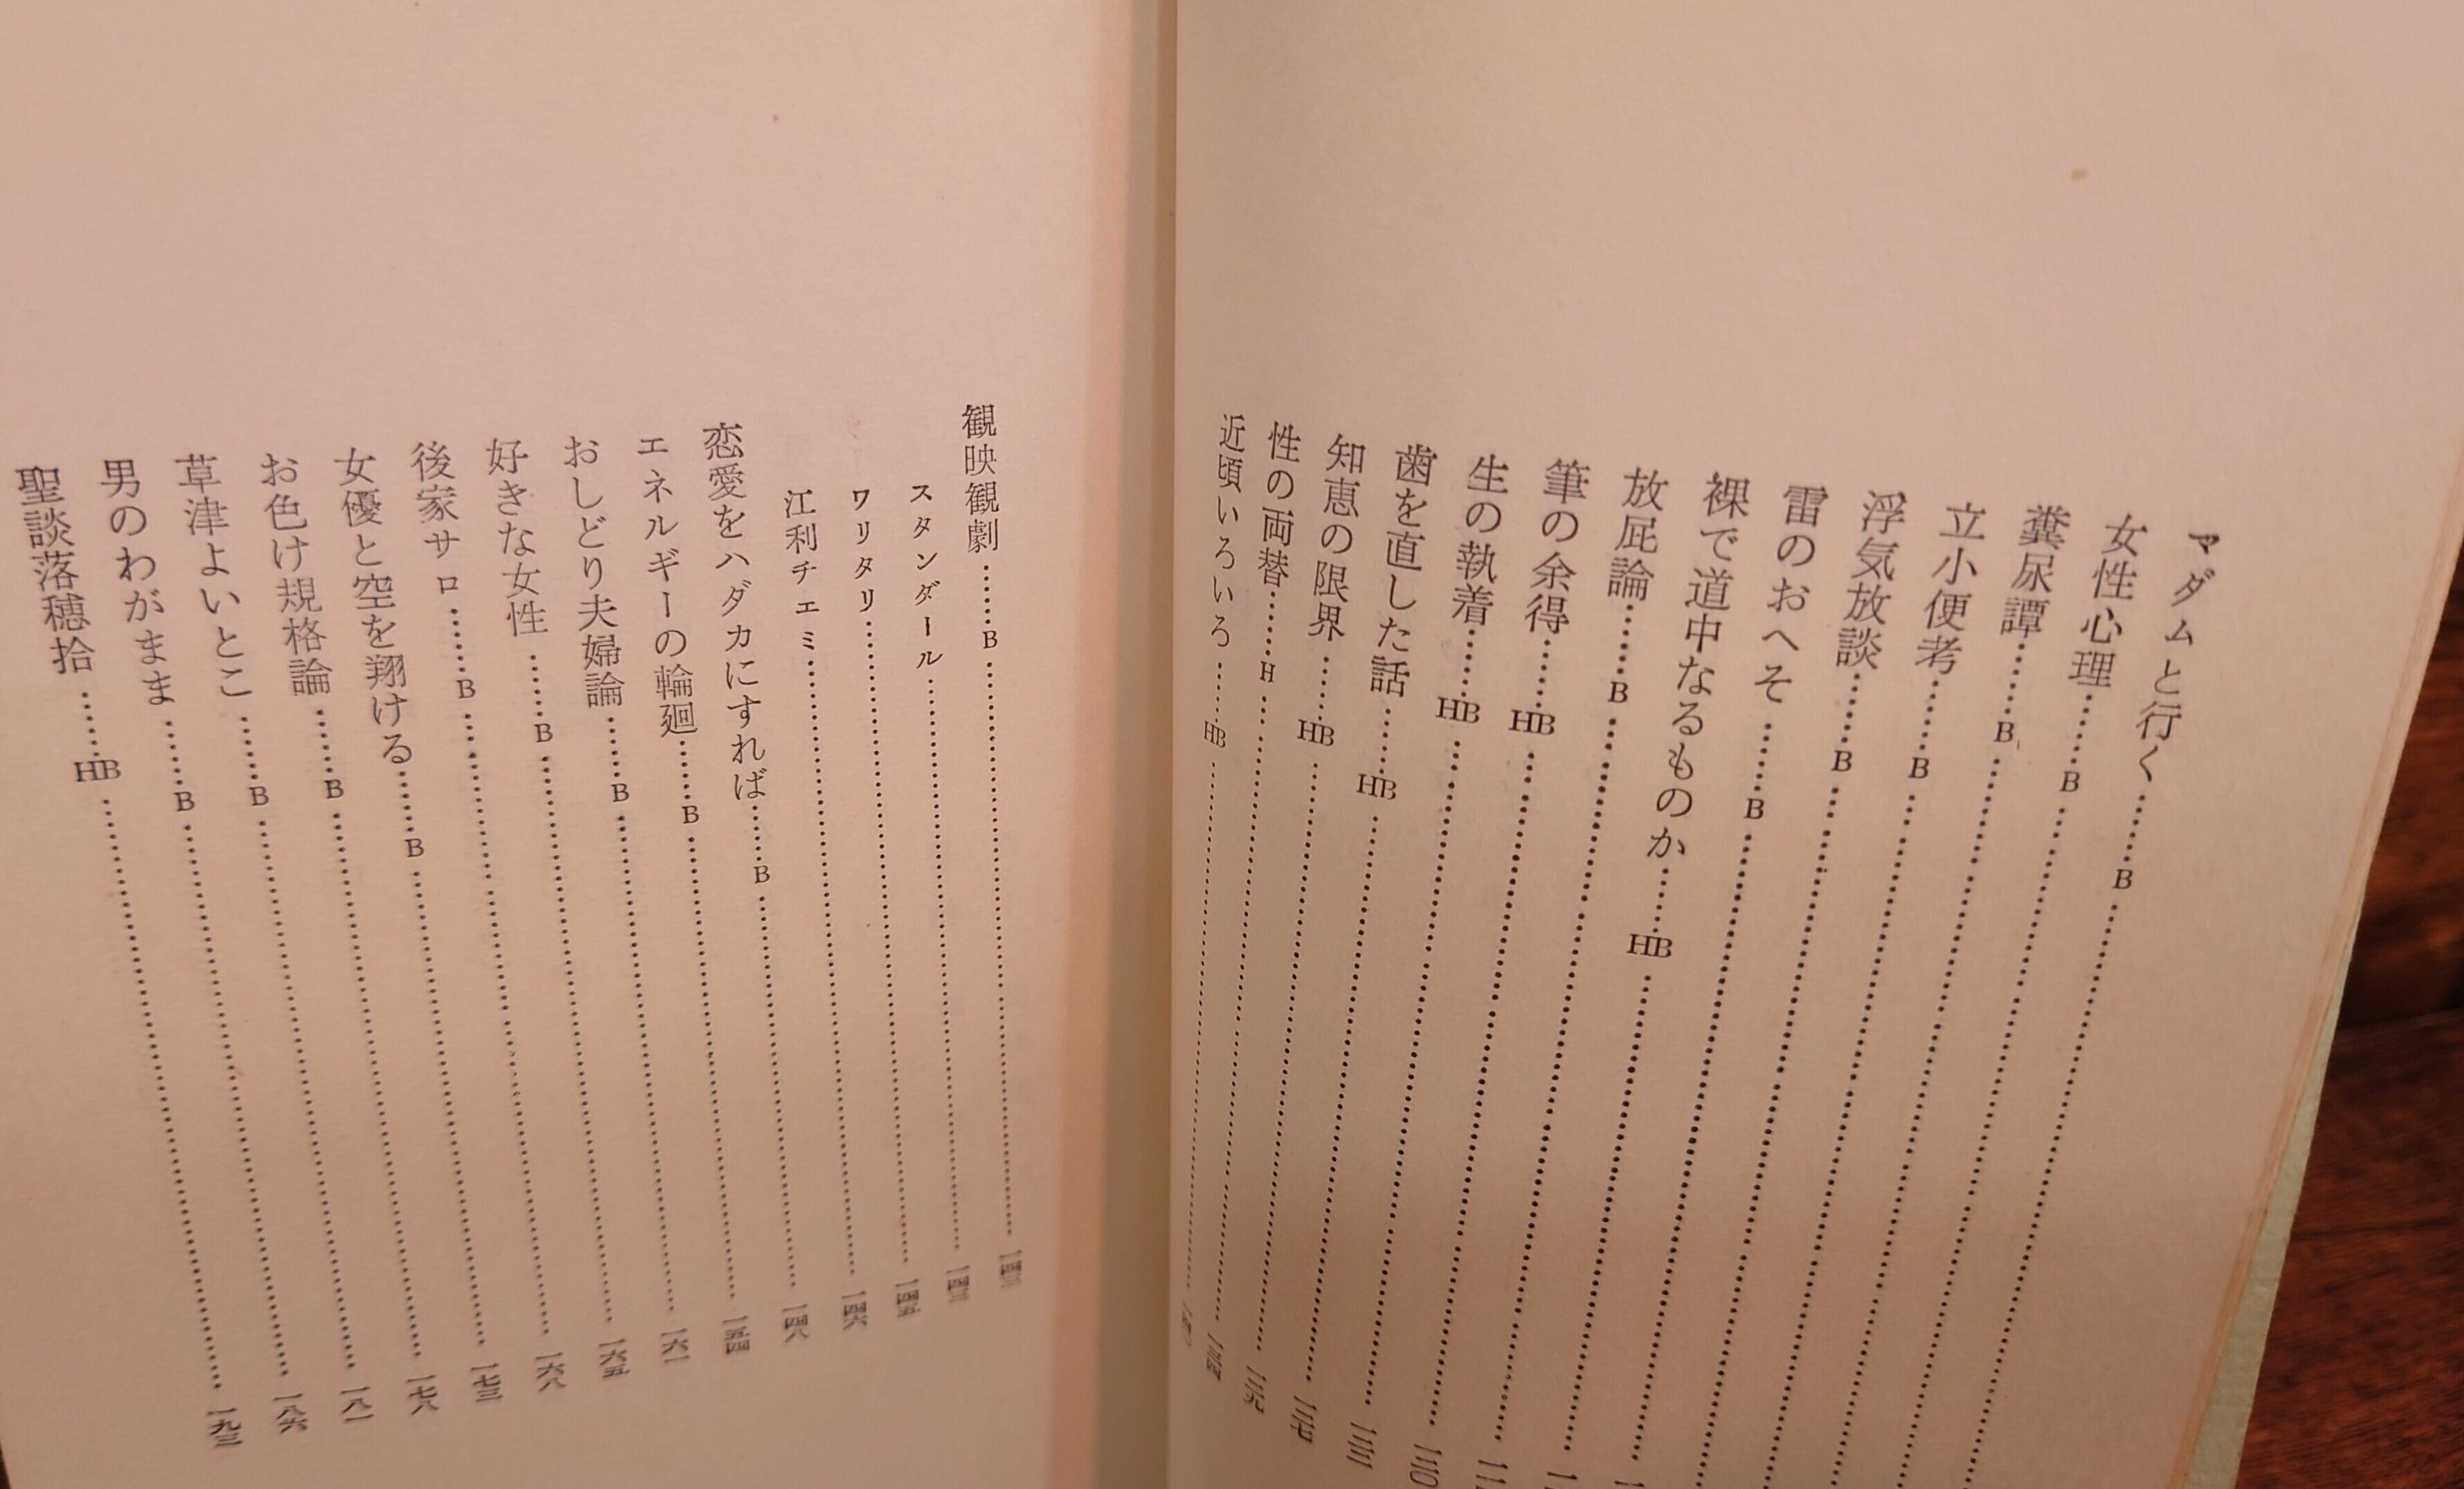 マダムと行く……B……
女性心理……B……
糞尿譚……B……
立小便考……B……
浮気放談……B……
雷のおへそ……B……
裸で道中なるものか……HB……
放屁論……B……
筆の余得……HB……
生の執着……HB……
歯を直した話……HB……
知恵の限界……HB……
性の両替……H……
近頃いろいろ……HB……
観映観劇……B……
スタンダール……一四三
ワリタリ……一四五
江利チエミ……一四六
恋愛をハダカにすれば……B……一四八
エネルギーの輪廻……B……一五四
おしどり夫婦論……B……一六一
好きな女性……B……一六五
後家サロ……B……一六八
女優と空を翔ける……B……一七三
お色け規格論……B……一七八
草津よいとこ……B……一八一
男のわがまま……B……一八六
聖談落穂拾……HB……一九三